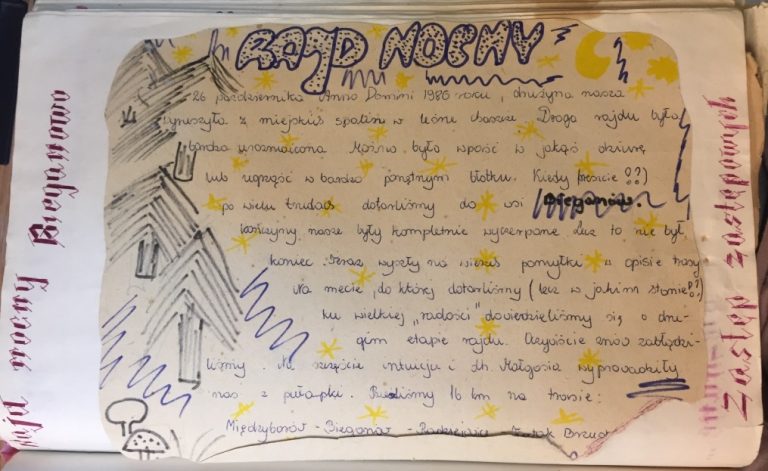 RAJD NOCNY
26 października Anno Domini 1986 roku, drużyna nasza
wyruszyła z miejskiś spalin w leśne chaszcze. Droga rajdu była
bardzo urozmaicona. Można było wpaść w jakąś dziurę
lub ugrząść w bardzo porządnym błotku. Kiedy 8?)
po wielu trudach dotarliśmy do wsi Bieganów.
kończyny nasze były kompletnie wyczerpane. Lecz to nie był
koniec. Teraz wyszły na wierzch pomyłki w opisie trasy
Na mecie, do której dotarliśmy (lecz w jakim stanie?)
ku wielkiej „radości" dowiedzieliśmy się o dru-
gim etapie rajdu. Oczywiście znów zabłądzi-
liśmy. Na szczęście intuicja i dh. Małgosia wyprowadziły
nas z pułapki. 16 km na trasie:
Międzyborów - Bieganów - Radziejowice -
nocny Bieganowo
Zastęp zastępowych